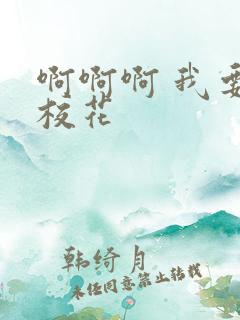 啊啊啊 我要
校花
韩绮月
未经同意禁止转载